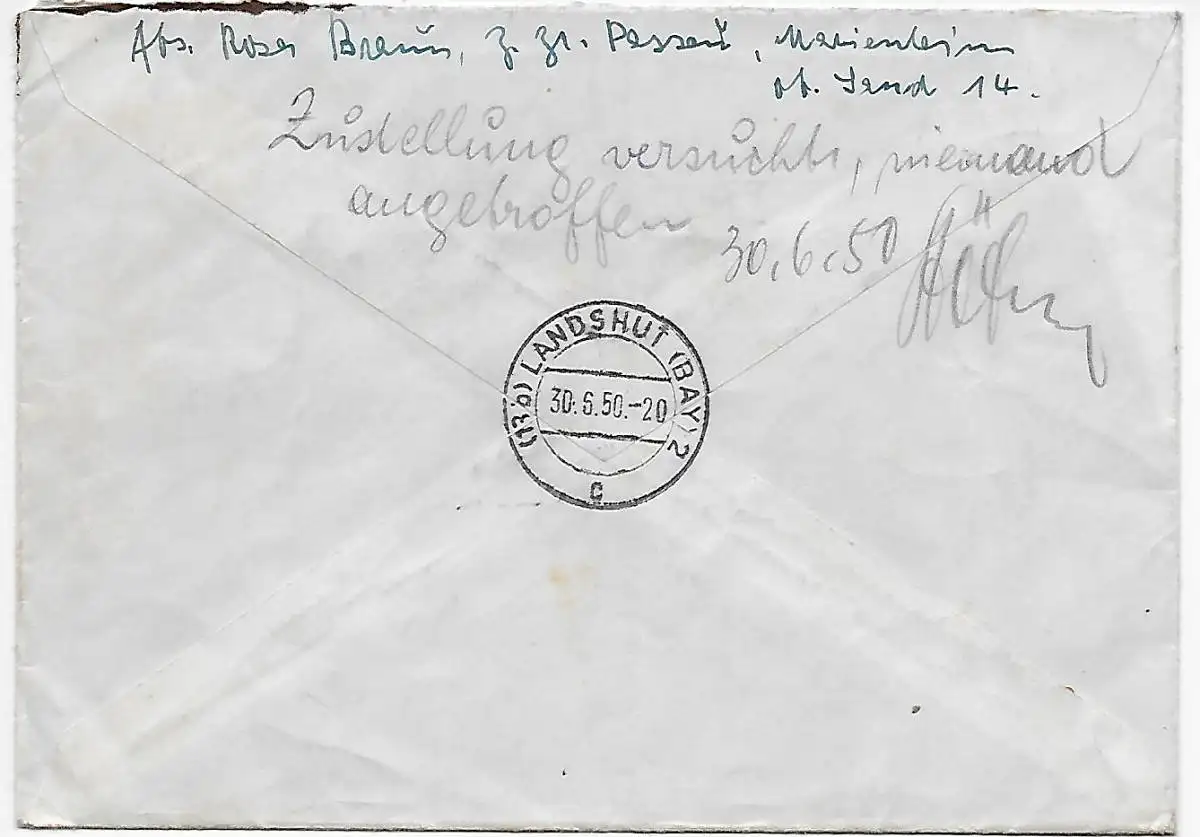 Abs. Rosa Braun, z. Zt. Passau, Marienheim
ob. Sand 14.
Zustellung versucht, niemand
angetroffen
30.6.50
(13b) LANDSHUT (BAY) 2
30.6.50.-20
c